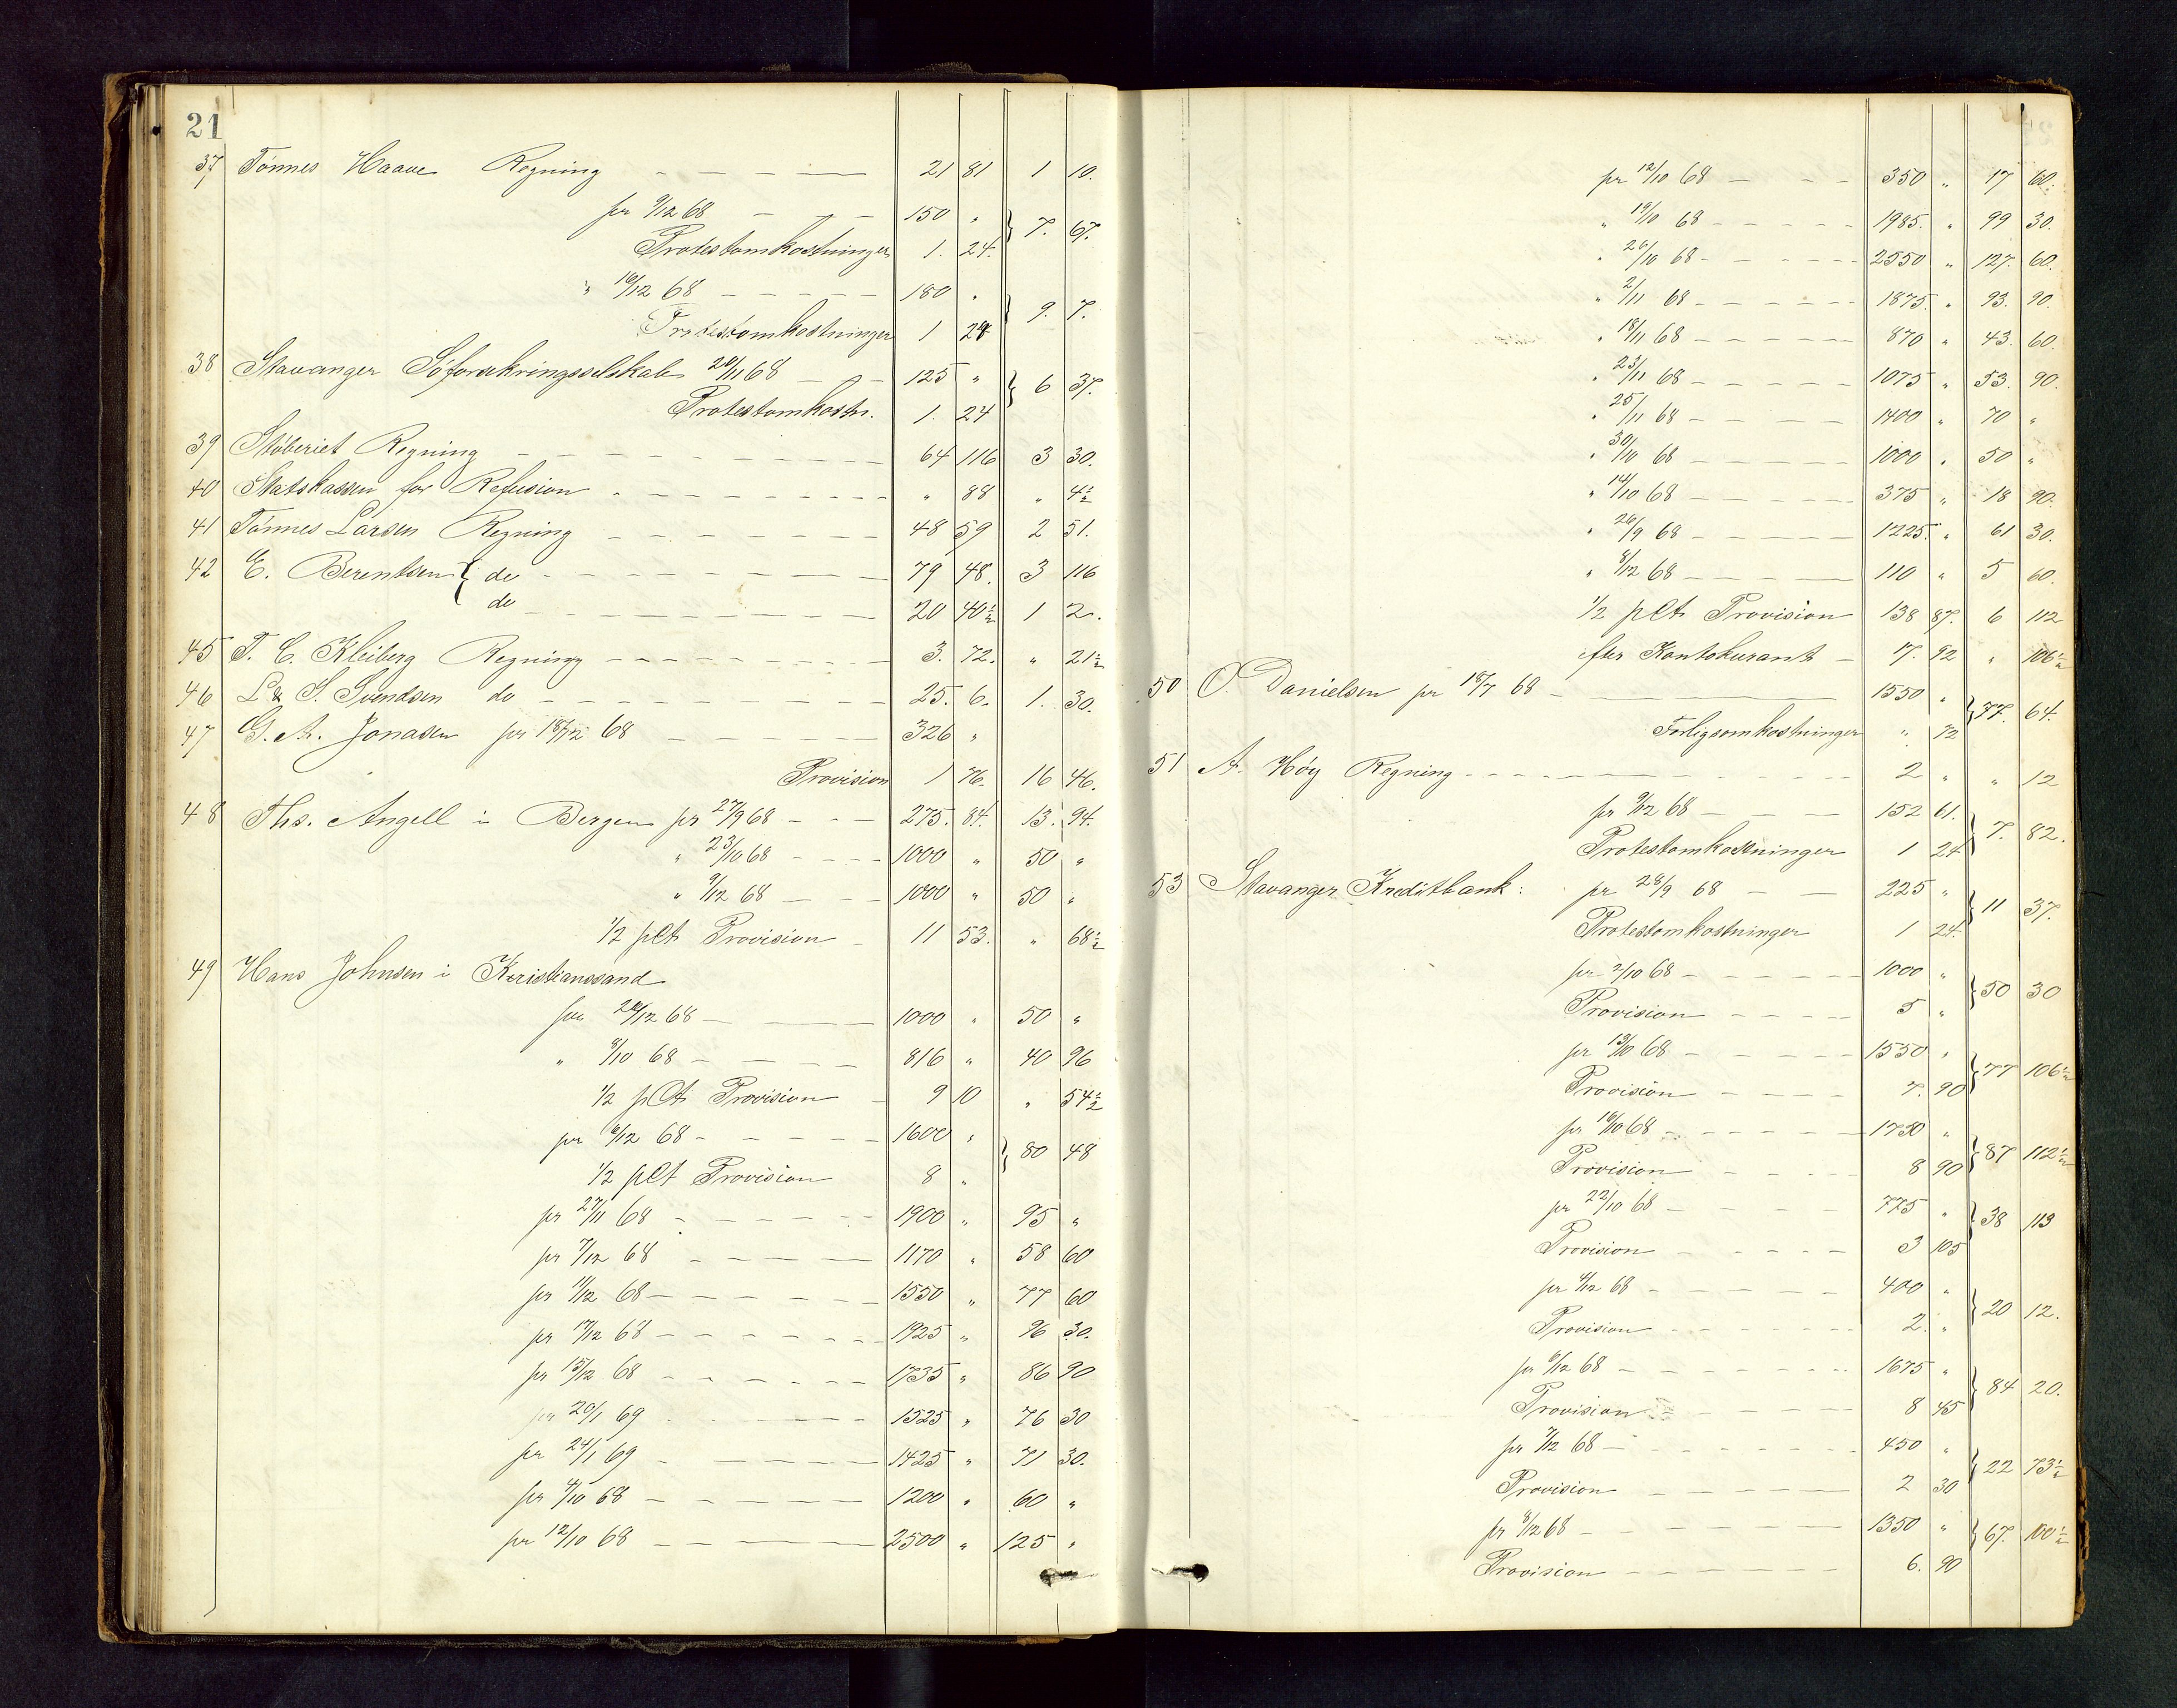 21
37 Tönnes Haave Regning - - - - 21 81 1 10.
pr 9/12 68 - - - 150 " } 7. 67.
Protestomkostninger 1. 24.
" 19/12 68 - - - - - 180 " } 9. 7.
Protestomkostninger 1 24
38 Stavanger Söforsikringsselskab 28/11 68 - - 125 " } 6 37.
Protestomkostn. 1. 24
39 Stöberiet Regning - - - - - - - - - 64 116 3 30.
40 Statskassen for Refusion - - - - - - - - " 88 " 4½
41 Tönnes Larsen Regning - - - - - - - 48 59 2 51.
42 E. Berentsen { do - - - - - - - - 79 48. 3 116
do - - - - - - - - - 20 40½ 1 2.
45 T. C. Kleiberg Regning - - - - - - - - 3. 72. " 21½
46 L & S. Svendsen do - - - - - - - - - 25. 6. 1. 30.
47 G. A. Jonasen pr 18/12 68 - - - - - 326 "
Provision 1 76. 16 46.
48 Ths. Angell i Bergen pr 27/9 68 - - - 275. 84. 13. 94.
" 23/10 68 - - - - 1000 " 50 "
" 9/12 68 - - - 1000 " 50 "
1/2 pCt Provision - 11 53. " 68½
49 Hans Johnsen i Kristianssand
pr 28/12 68 - - - 1000 " 50 "
" 8/10 68 - - - - 816 " 40 96
1/2 pCt Provision - 9 10 " 54½
pr 6/12 68 - - - - - 1600 " } 80 48
1/2 pCt Provision 8 "
pr 27/11 68 - - - - - 1900 " 95 "
pr 7/12 68 - - - - - 1170 " 58 60
pr 11/12 68 - - - - - - 1550 " 77 60
pr 17/12 68 - - - - - - 1925 " 96 30.
pr 15/12 68 - - - - - - 1735 " 86 90
pr 20/1 69 - - - - - 1525 " 76 30
pr 24/1 69 - - - - - - 1425 " 71 30.
pr 9/10 68 - - - - - 1200 " 60 "
pr 12/10 68 - - - - - 2500 " 125 "
pr 12/10 68 - - - 350 " 17 60.
" 19/10 68 - - - - - 1985. " 99 30.
" 26/10 68 - - - - - - 2550 " 127. 60.
" 2/11 68 - - - - - - 1875. " 93. 90.
" 18/11 68 - - - - - - 870 " 43. 60.
" 23/11 68 - - - - - 1075 " 53. 90.
" 25/11 68 - - - - 1400 " 70 "
" 30/10 68 - - - - - 1000 " 50 "
" 14/10 68 - - - - - 375 " 18 90.
" 26/9 68 - - - - - 1225. " 61 30.
" 8/12 68 - - - - - 110 " 5 60.
1/2 pCt Provision 138 87. 6 112
efter Kontokurant - 17. 92 " 106½
50 O. Danielsen pr 18/7 68 - - 1550 " } 77. 64.
Forligsomkostninger " 72
51 A. Höy Regning - - - - - - - - - 2 " " 12
pr 9/12 68 - - - 152 61. } 7. 82.
Protestomkostninger 1 24
53 Stavanger Kreditbank: pr 28/9 68 - - 225 " } 11 37.
Protestomkostninger 1 24.
pr 2/10 68 - - - - - 1000 " } 50 30
Provision - - - - 5 "
pr 13/10 68 - - - - - 1550 " } 77 106½
Provision - - - - 7. 90
pr 16/10 68 - - - - - 1750 " } 87 112½
Provision - - - - 8 90
pr 22/10 68 - - - - - 775 " } 38 113
Provision - - - - - 3 105
pr 4/12 68 - - - - - 400 " } 20 12.
Provision - - - - - 2. "
pr 6/12 68 - - - - - - 1675 " } 84 20.
Provision - - - - - - 8 45
pr 7/12 68 - - - - - - 450 " } 22 73½
Provision - - - - - 2 30
pr 8/12 68 - - - - - - 1350 " } 67. 100½
Provision - - - - - - 6. 90